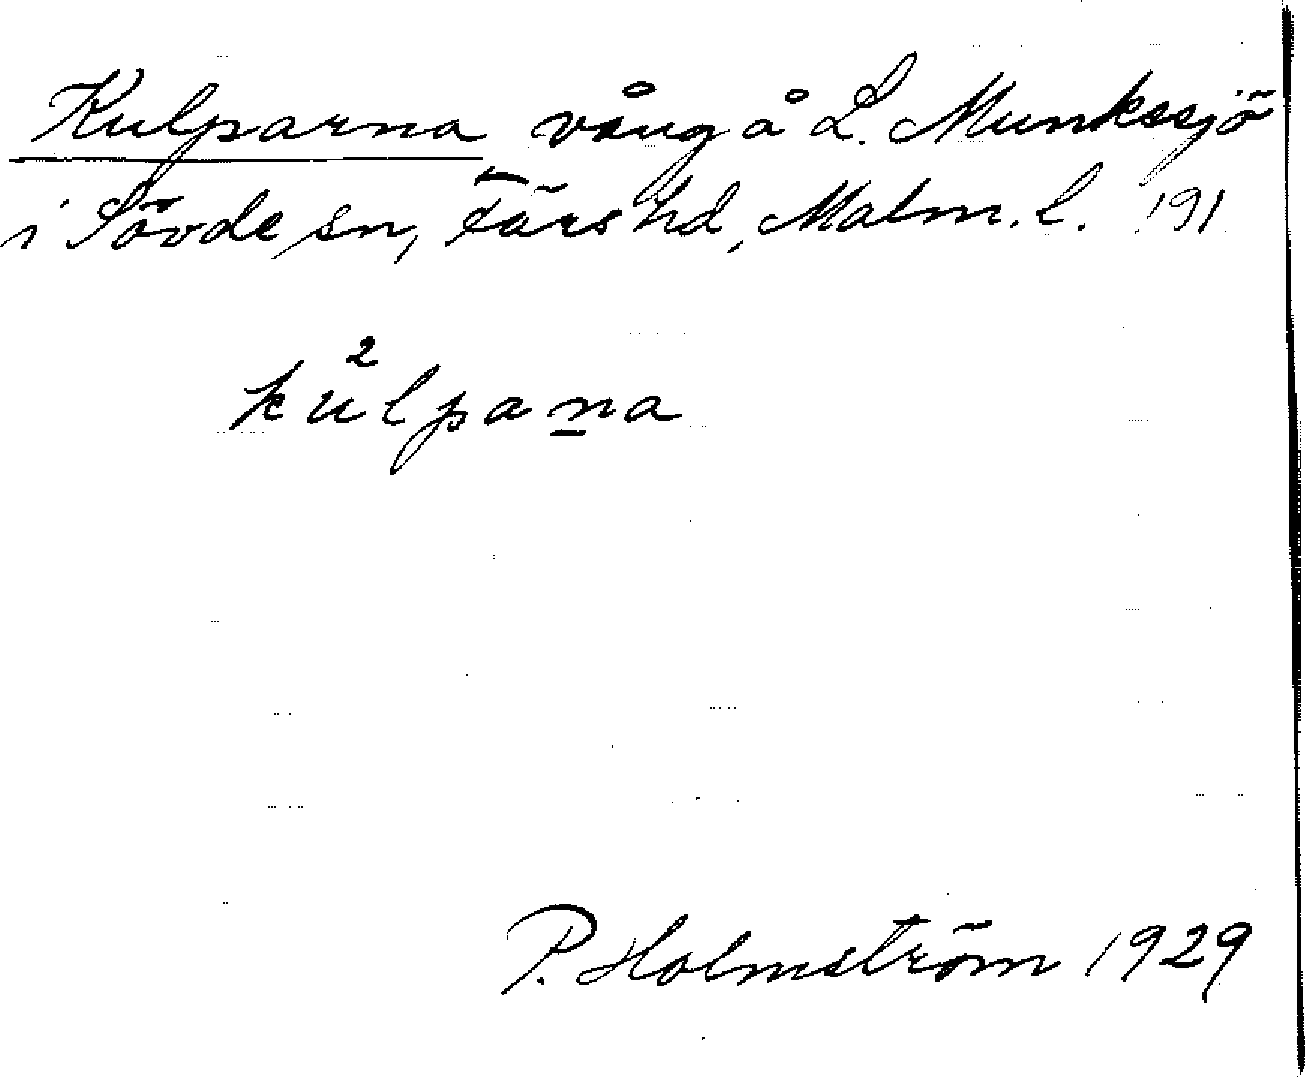 Kulparna vång å L. Munkssjö
i Sövde sn, Färs hd, Malm. l. 191
ku²lpana
P. Holmström 1929